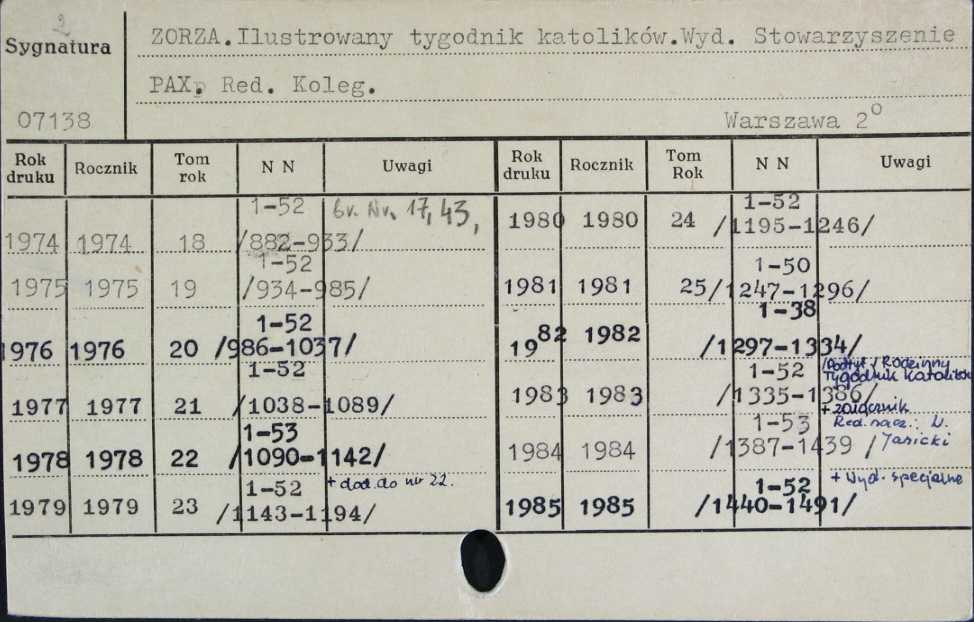 2
Sygnatura
07138
ZORZA.Ilustrowany tygodnik katolików.Wyd. Stowarzyszenie
PAX. Red. Koleg.
Warszawa 2°
Rok druku Rocznik Tom rok N N Uwagi
1974 1974 18 1-52 /882-933/ Nr. 17, 43,
1975 1975 19 1-52 /934-985/
1976 1976 20 1-52 /986-1037/
1977 1977 21 1-52 /1038-1089/
1978 1978 22 1-53 /1090-1142/
1979 1979 23 1-52 /1143-1194/ + dod. do nr 22.
Rok druku Rocznik Tom Rok N N Uwagi
1980 1980 24 1-52 /1195-1246/
1981 1981 25 1-50 /1247-1296/
1982 1982 1-38 /1297-1334/
1983 1983 1-52 /1335-1386/ /Podtyt./ Rodzinny Tygodnik Katolików
1984 1984 1-53 /1387-1439/ Red. nacz.: Jasicki
1985 1985 1-52 /1440-1491/ + Wyd. specjalne